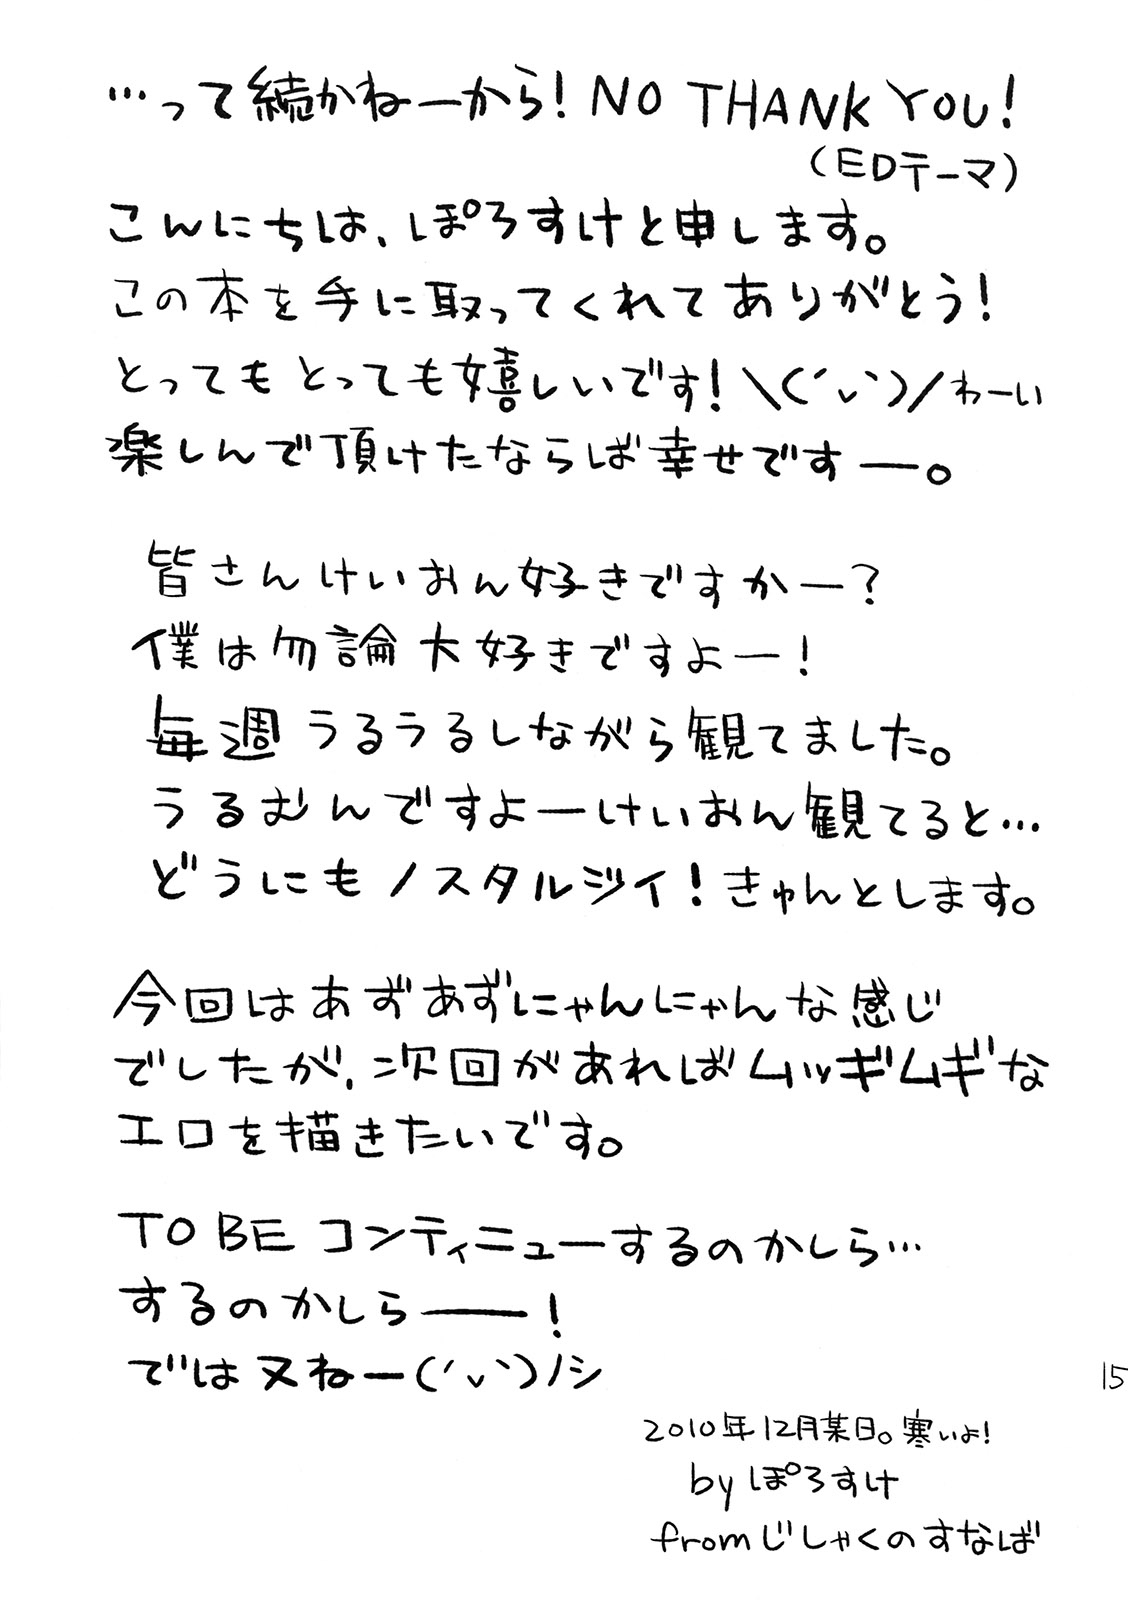 …って続かねーから!NO THANK YOU!
(EDテーマ)
こんにちは、ぽろすけと申します。
この本を手に取ってくれてありがとう!
とってもとっても嬉しいです!\(´ヮ`)/わーい
楽しんで頂けたならば幸せですー。
皆さんけいおん好きですかー?
僕は勿論大好きですよー!
毎週うるうるしながら観てました。
うるむんですよーけいおん観てると…
どうにもノスタルジイ!きゅんとします。
今回はあずあずにゃんにゃんな感じ
でしたが、次回があればムッギムギな
エロを描きたいです。
TO BE コンティニューするのかしら…
するのかしらー!
では又ねー(´ヮ`)ノシ
15
2010年12月某日。寒いよ!
by ぽろすけ
fromじしゃくのすなば